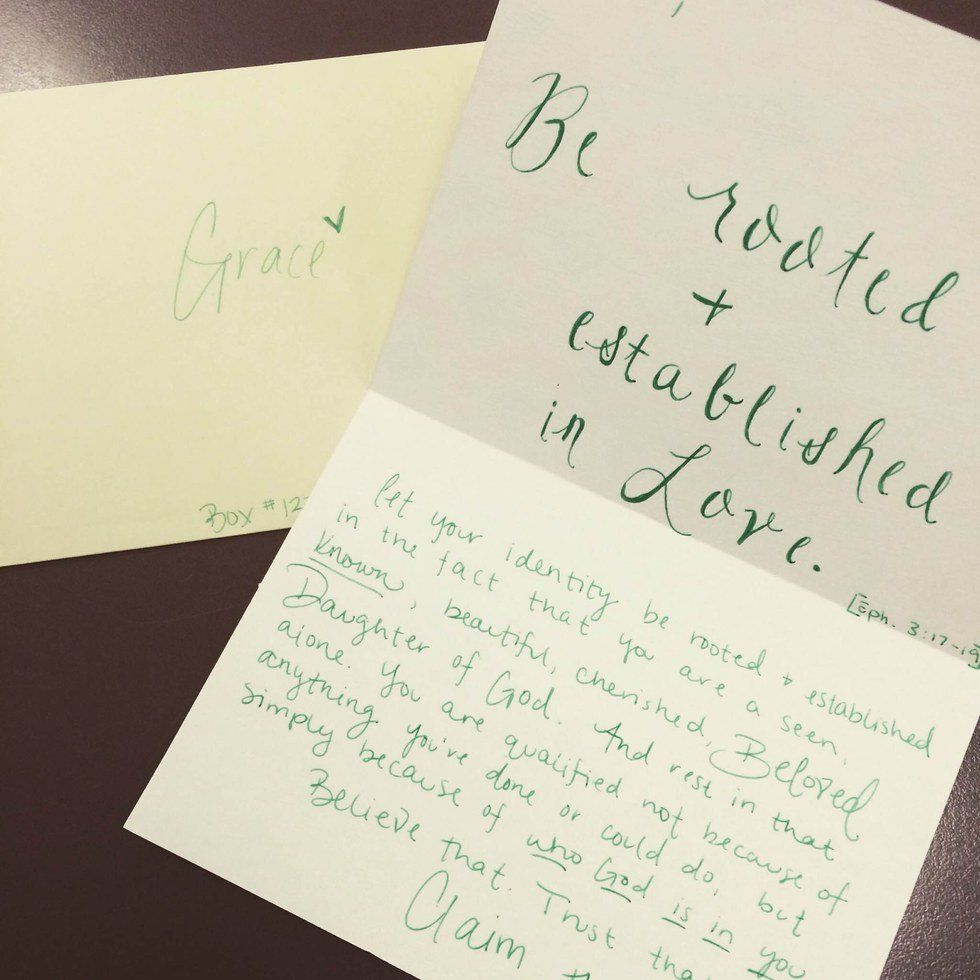 Grace
Box #12
Be rooted
+
established
in Love.
[Eph. 3:17-19]
let your identity be rooted + established
in the fact that you are a seen,
known, beautiful, cherished, Beloved
Daughter of God. And rest in that
alone. You are qualified not because of
anything you've done or could do, but
simply because of who God is in you
Believe that. Trust tha
Claim th